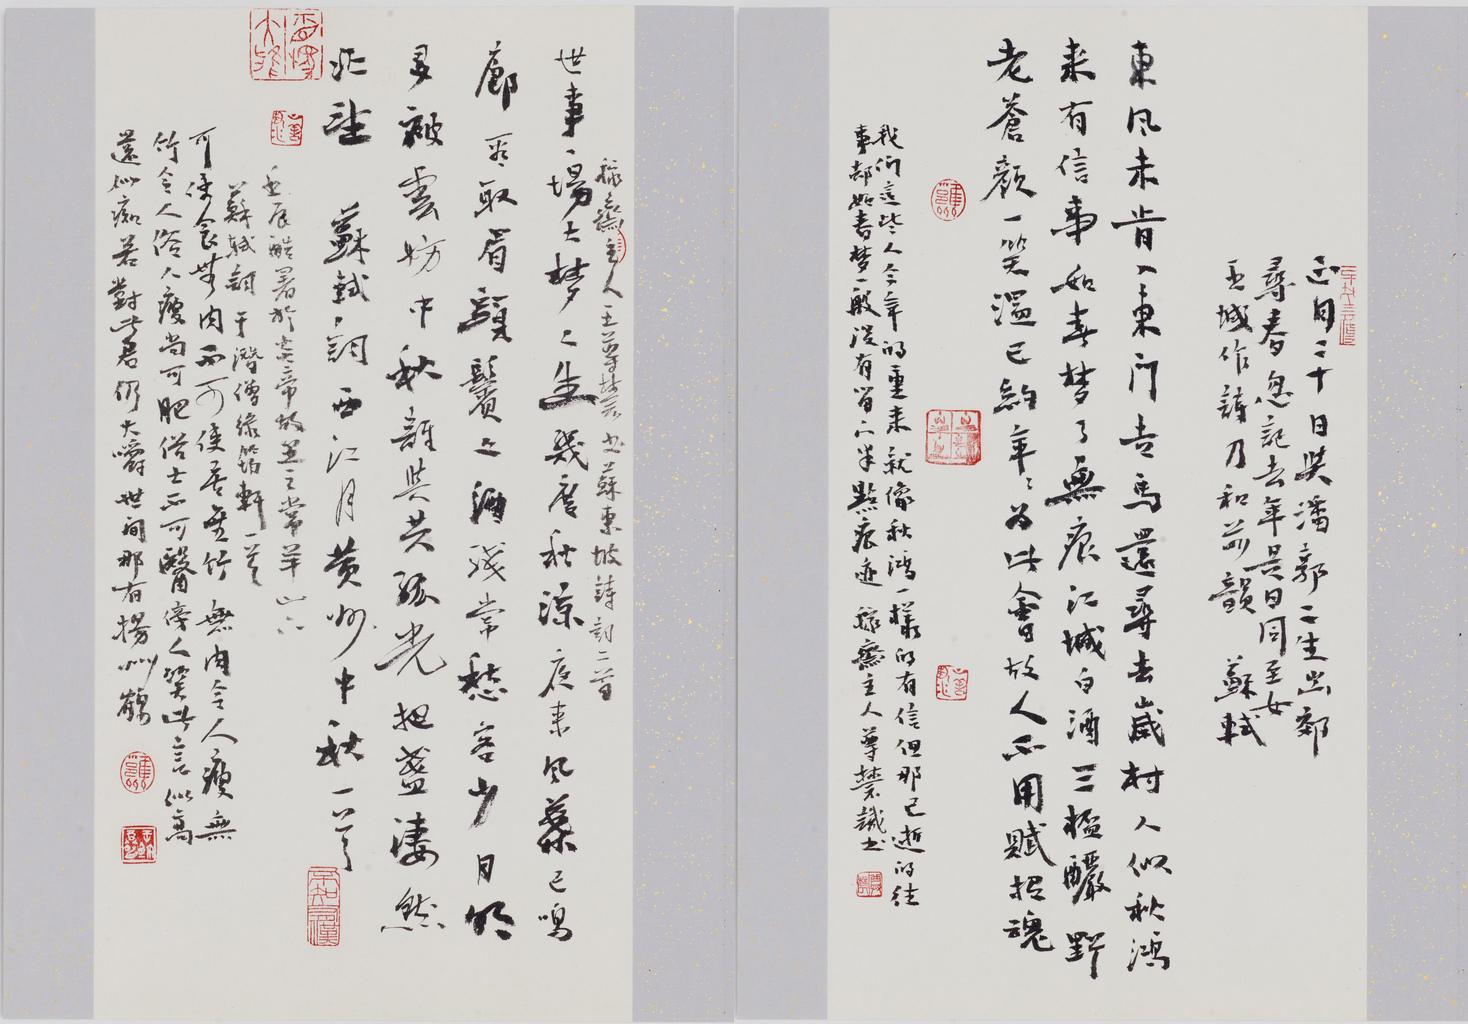 正月二十日與潘郭二生出郊
尋春忽記去年是日同至女
王城作詩乃和前韻 蘇軾
東風未肯入東門走馬還尋去歲村人似秋鴻
來有信事如春夢了無痕江城白酒三杯釅野
老蒼顏一笑溫已約年年為此會故人不用賦招魂
我們這些人今年的重來就像秋鴻一樣的有信但那已逝的往
事都如春夢一般沒有留下半點痕迹 齋主人尊 識書
齋主人王尊 書蘇東坡詩詞二首
世事一場大夢人生幾度秋涼夜來風葉已鳴
廊看取眉頭鬢上酒賤常愁客少月明
多被雲妨中秋誰與共孤光把盞淒然
北望 蘇軾詞西江月黃州中秋一首
蘇軾詞于潛僧綠筠軒一首
可使食無肉不可使居無竹無肉令人瘦無
竹令人俗人瘦尚可肥俗士不可醫傍人笑此言似高
還似癡若對此君仍大嚼世間那有揚州鶴